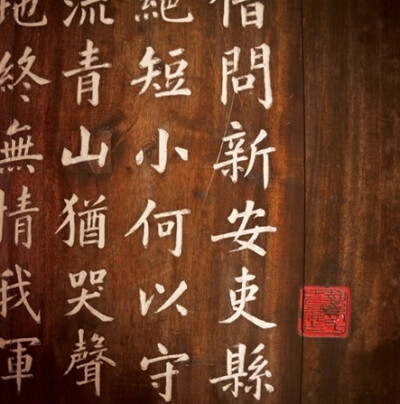 借問新安吏縣
絕短小何以守
流青山猶哭聲
地終無情我軍